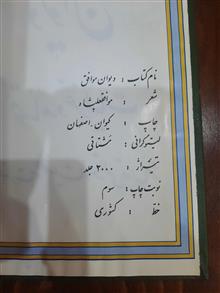 نام کتاب : دیوان موافق
شعر : موافقعلیشاه
چاپ : کیوان - اصفهان
لیتوگرافی : نشتائی
تیراژ : ۲۰۰۰ جلد
نوبت چاپ : سوم
خط : کشوری